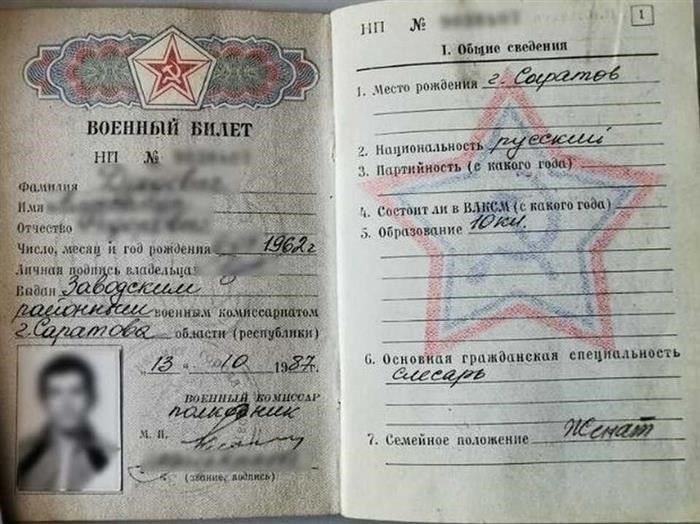 ВОЕННЫЙ БИЛЕТ
НП №
Фамилия
Имя
Отчество
Число, месяц и год рождения 1962г
Личная подпись владельца
Выдан Заводским
районным военным комиссариатом
г. Саратова области (республики)
„13 " 10 1987г.
ВОЕННЫЙ КОМИССАР
полковник
М. П.
(звание, подпись)
НП №
1
I. Общие сведения
1. Место рождения г. Саратов
2. Национальность русский
3. Партийность (с какого года)
4. Состоит ли в ВЛКСМ (с какого года)
5. Образование 10 кл.
6. Основная гражданская специальность
слесарь
7. Семейное положение Женат